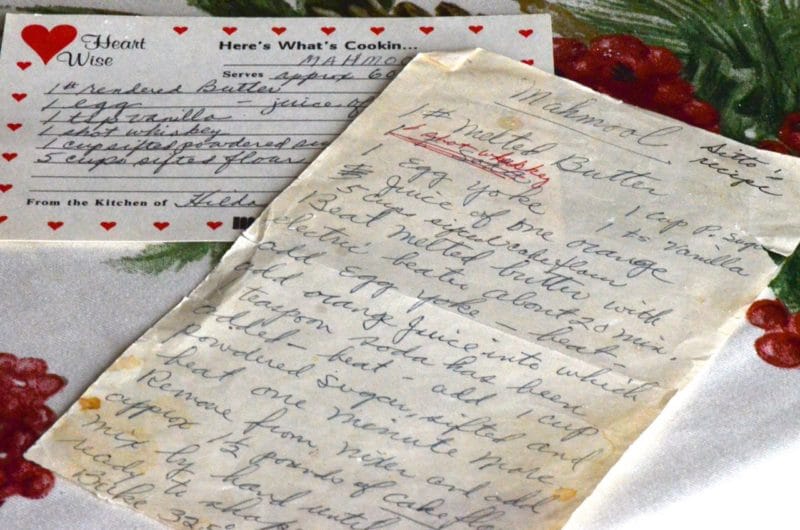 Heart
Wise
Here's What's Cookin...
MAHMOO
Serves approx 60
1# rendered Butter
1 egg - juice of
1 tsp vanilla
1 shot whiskey
1 cup sifted powdered su
5 cups sifted flour
From the Kitchen of Hilda
Mahmool
Sitto's
recipe
1# Melted Butter
1 shot whisky
1 Egg Yoke 1 cup P. sugar
Juice of one orange 1 ts Vanilla
5 cups sifted cake flour
Beat melted butter with
electric beater about 20 min.
add Egg Yoke - beat -
add orange juice into which
teaspon soda has been
added - beat - add 1 cup
powdered sugar, sifted and
beat one minute more
Remove from mixer and add
approx 1½ pounds of cake flo
mix by hand until
ready to sha
Bake 325°